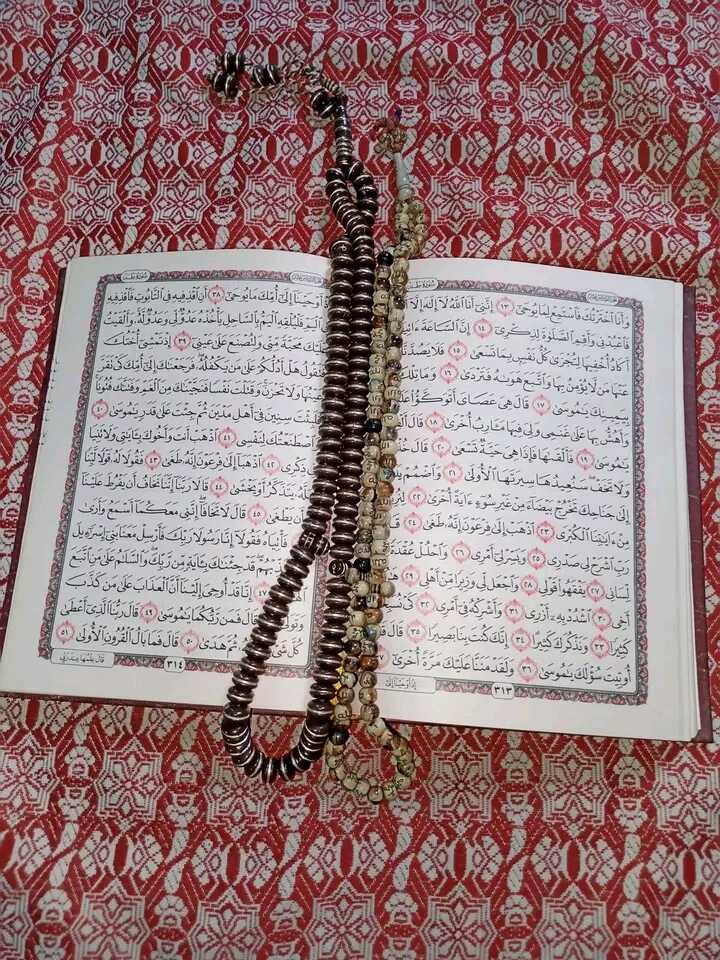 وَأَنَا ٱخْتَرْتُكَ فَٱسْتَمِعْ لِمَا يُوحَىٰٓ ١٣ إِنَّنِىٓ أَنَا ٱللَّهُ لَآ إِلَٰهَ إِلَّآ
فَٱعْبُدْنِى وَأَقِمِ ٱلصَّلَوٰةَ لِذِكْرِىٓ ١٤ إِنَّ ٱلسَّاعَةَ
أَكَادُ أُخْفِيهَا لِتُجْزَىٰ كُلُّ نَفْسٍۭ بِمَا تَسْعَىٰ ١٥ فَلَا
عَنْهَا مَن لَّا يُؤْمِنُ بِهَا وَٱتَّبَعَ هَوَىٰهُ فَتَرْدَىٰ ١٦ وَمَا تِلْكَ
بِيَمِينِكَ يَٰمُوسَىٰ ١٧ قَالَ هِىَ عَصَاىَ أَتَوَكَّؤُا۟
وَأَهُشُّ بِهَا عَلَىٰ غَنَمِى وَلِىَ فِيهَا مَـَٔارِبُ أُخْرَىٰ ١٨ قَالَ
يَٰمُوسَىٰ ١٩ فَأَلْقَىٰهَا فَإِذَا هِىَ حَيَّةٌ تَسْعَىٰ ٢٠ قَالَ
وَلَا تَخَفْ سَنُعِيدُهَا سِيرَتَهَا ٱلْأُولَىٰ ٢١ وَٱضْمُمْ
إِلَىٰ جَنَاحِكَ تَخْرُجْ بَيْضَآءَ مِنْ غَيْرِ سُوٓءٍ ءَايَةً أُخْرَىٰ ٢٢
مِنْ ءَايَٰتِنَا ٱلْكُبْرَى ٢٣ ٱذْهَبْ إِلَىٰ فِرْعَوْنَ إِنَّهُۥ طَغَىٰ ٢٤ قَالَ
رَبِّ ٱشْرَحْ لِى صَدْرِى ٢٥ وَيَسِّرْ لِىٓ أَمْرِى ٢٦ وَٱحْلُلْ عُقْدَةً
لِّسَانِى ٢٧ يَفْقَهُوا۟ قَوْلِى ٢٨ وَٱجْعَل لِّى وَزِيرًا مِّنْ أَهْلِى ٢٩
أَخِى ٣٠ ٱشْدُدْ بِهِۦٓ أَزْرِى ٣١ وَأَشْرِكْهُ فِىٓ أَمْرِى ٣٢ كَىْ
كَثِيرًا ٣٣ وَنَذْكُرَكَ كَثِيرًا ٣٤ إِنَّكَ كُنتَ بِنَا بَصِيرًا ٣٥ قَالَ
أُوتِيتَ سُؤْلَكَ يَٰمُوسَىٰ ٣٦ وَلَقَدْ مَنَنَّا عَلَيْكَ مَرَّةً أُخْرَىٰٓ ٣٧
٣١٣
إِذْ أَوْحَيْنَآ
أَوْحَيْنَآ إِلَىٰٓ أُمِّكَ مَا يُوحَىٰٓ ٣٨ أَنِ ٱقْذِفِيهِ فِى ٱلتَّابُوتِ فَٱقْذِفِيهِ
ٱلْيَمِّ فَلْيُلْقِهِ ٱلْيَمُّ بِٱلسَّاحِلِ يَأْخُذْهُ عَدُوٌّ لِّى وَعَدُوٌّ لَّهُۥ وَأَلْقَيْتُ
مَحَبَّةً مِّنِّى وَلِتُصْنَعَ عَلَىٰ عَيْنِىٓ ٣٩ إِذْ تَمْشِىٓ أُخْتُكَ
فَتَقُولُ هَلْ أَدُلُّكُمْ عَلَىٰ مَن يَكْفُلُهُۥ فَرَجَعْنَٰكَ إِلَىٰٓ أُمِّكَ كَىْ تَقَرَّ
عَيْنُهَا وَلَا تَحْزَنَ وَقَتَلْتَ نَفْسًا فَنَجَّيْنَٰكَ مِنَ ٱلْغَمِّ وَفَتَنَّٰكَ فُتُونًا
سِنِينَ فِىٓ أَهْلِ مَدْيَنَ ثُمَّ جِئْتَ عَلَىٰ قَدَرٍ يَٰمُوسَىٰ ٤٠
وَٱصْطَنَعْتُكَ لِنَفْسِى ٤١ ٱذْهَبْ أَنتَ وَأَخُوكَ بِـَٔايَٰتِى وَلَا تَنِيَا
ذِكْرِى ٤٢ ٱذْهَبَآ إِلَىٰ فِرْعَوْنَ إِنَّهُۥ طَغَىٰ ٤٣ فَقُولَا لَهُۥ قَوْلًا لَّيِّنًا
يَتَذَكَّرُ أَوْ يَخْشَىٰ ٤٤ قَالَا رَبَّنَآ إِنَّنَا نَخَافُ أَن يَفْرُطَ عَلَيْنَآ
يَطْغَىٰ ٤٥ قَالَ لَا تَخَافَآ إِنَّنِى مَعَكُمَآ أَسْمَعُ وَأَرَىٰ
فَأْتِيَاهُ فَقُولَآ إِنَّا رَسُولَا رَبِّكَ فَأَرْسِلْ مَعَنَا بَنِىٓ إِسْرَٰٓءِيلَ
قَدْ جِئْنَٰكَ بِـَٔايَةٍ مِّن رَّبِّكَ وَٱلسَّلَٰمُ عَلَىٰ مَنِ ٱتَّبَعَ
٤٧ إِنَّا قَدْ أُوحِىَ إِلَيْنَآ أَنَّ ٱلْعَذَابَ عَلَىٰ مَن كَذَّبَ
وَتَوَلَّىٰ قَالَ فَمَن رَّبُّكُمَا يَٰمُوسَىٰ ٤٩ قَالَ رَبُّنَا ٱلَّذِىٓ أَعْطَىٰ
كُلَّ شَىْءٍ ثُمَّ هَدَىٰ ٥٠ قَالَ فَمَا بَالُ ٱلْقُرُونِ ٱلْأُولَىٰ ٥١
٣١٤
قَالَ عِلْمُهَا عِندَ رَبِّى